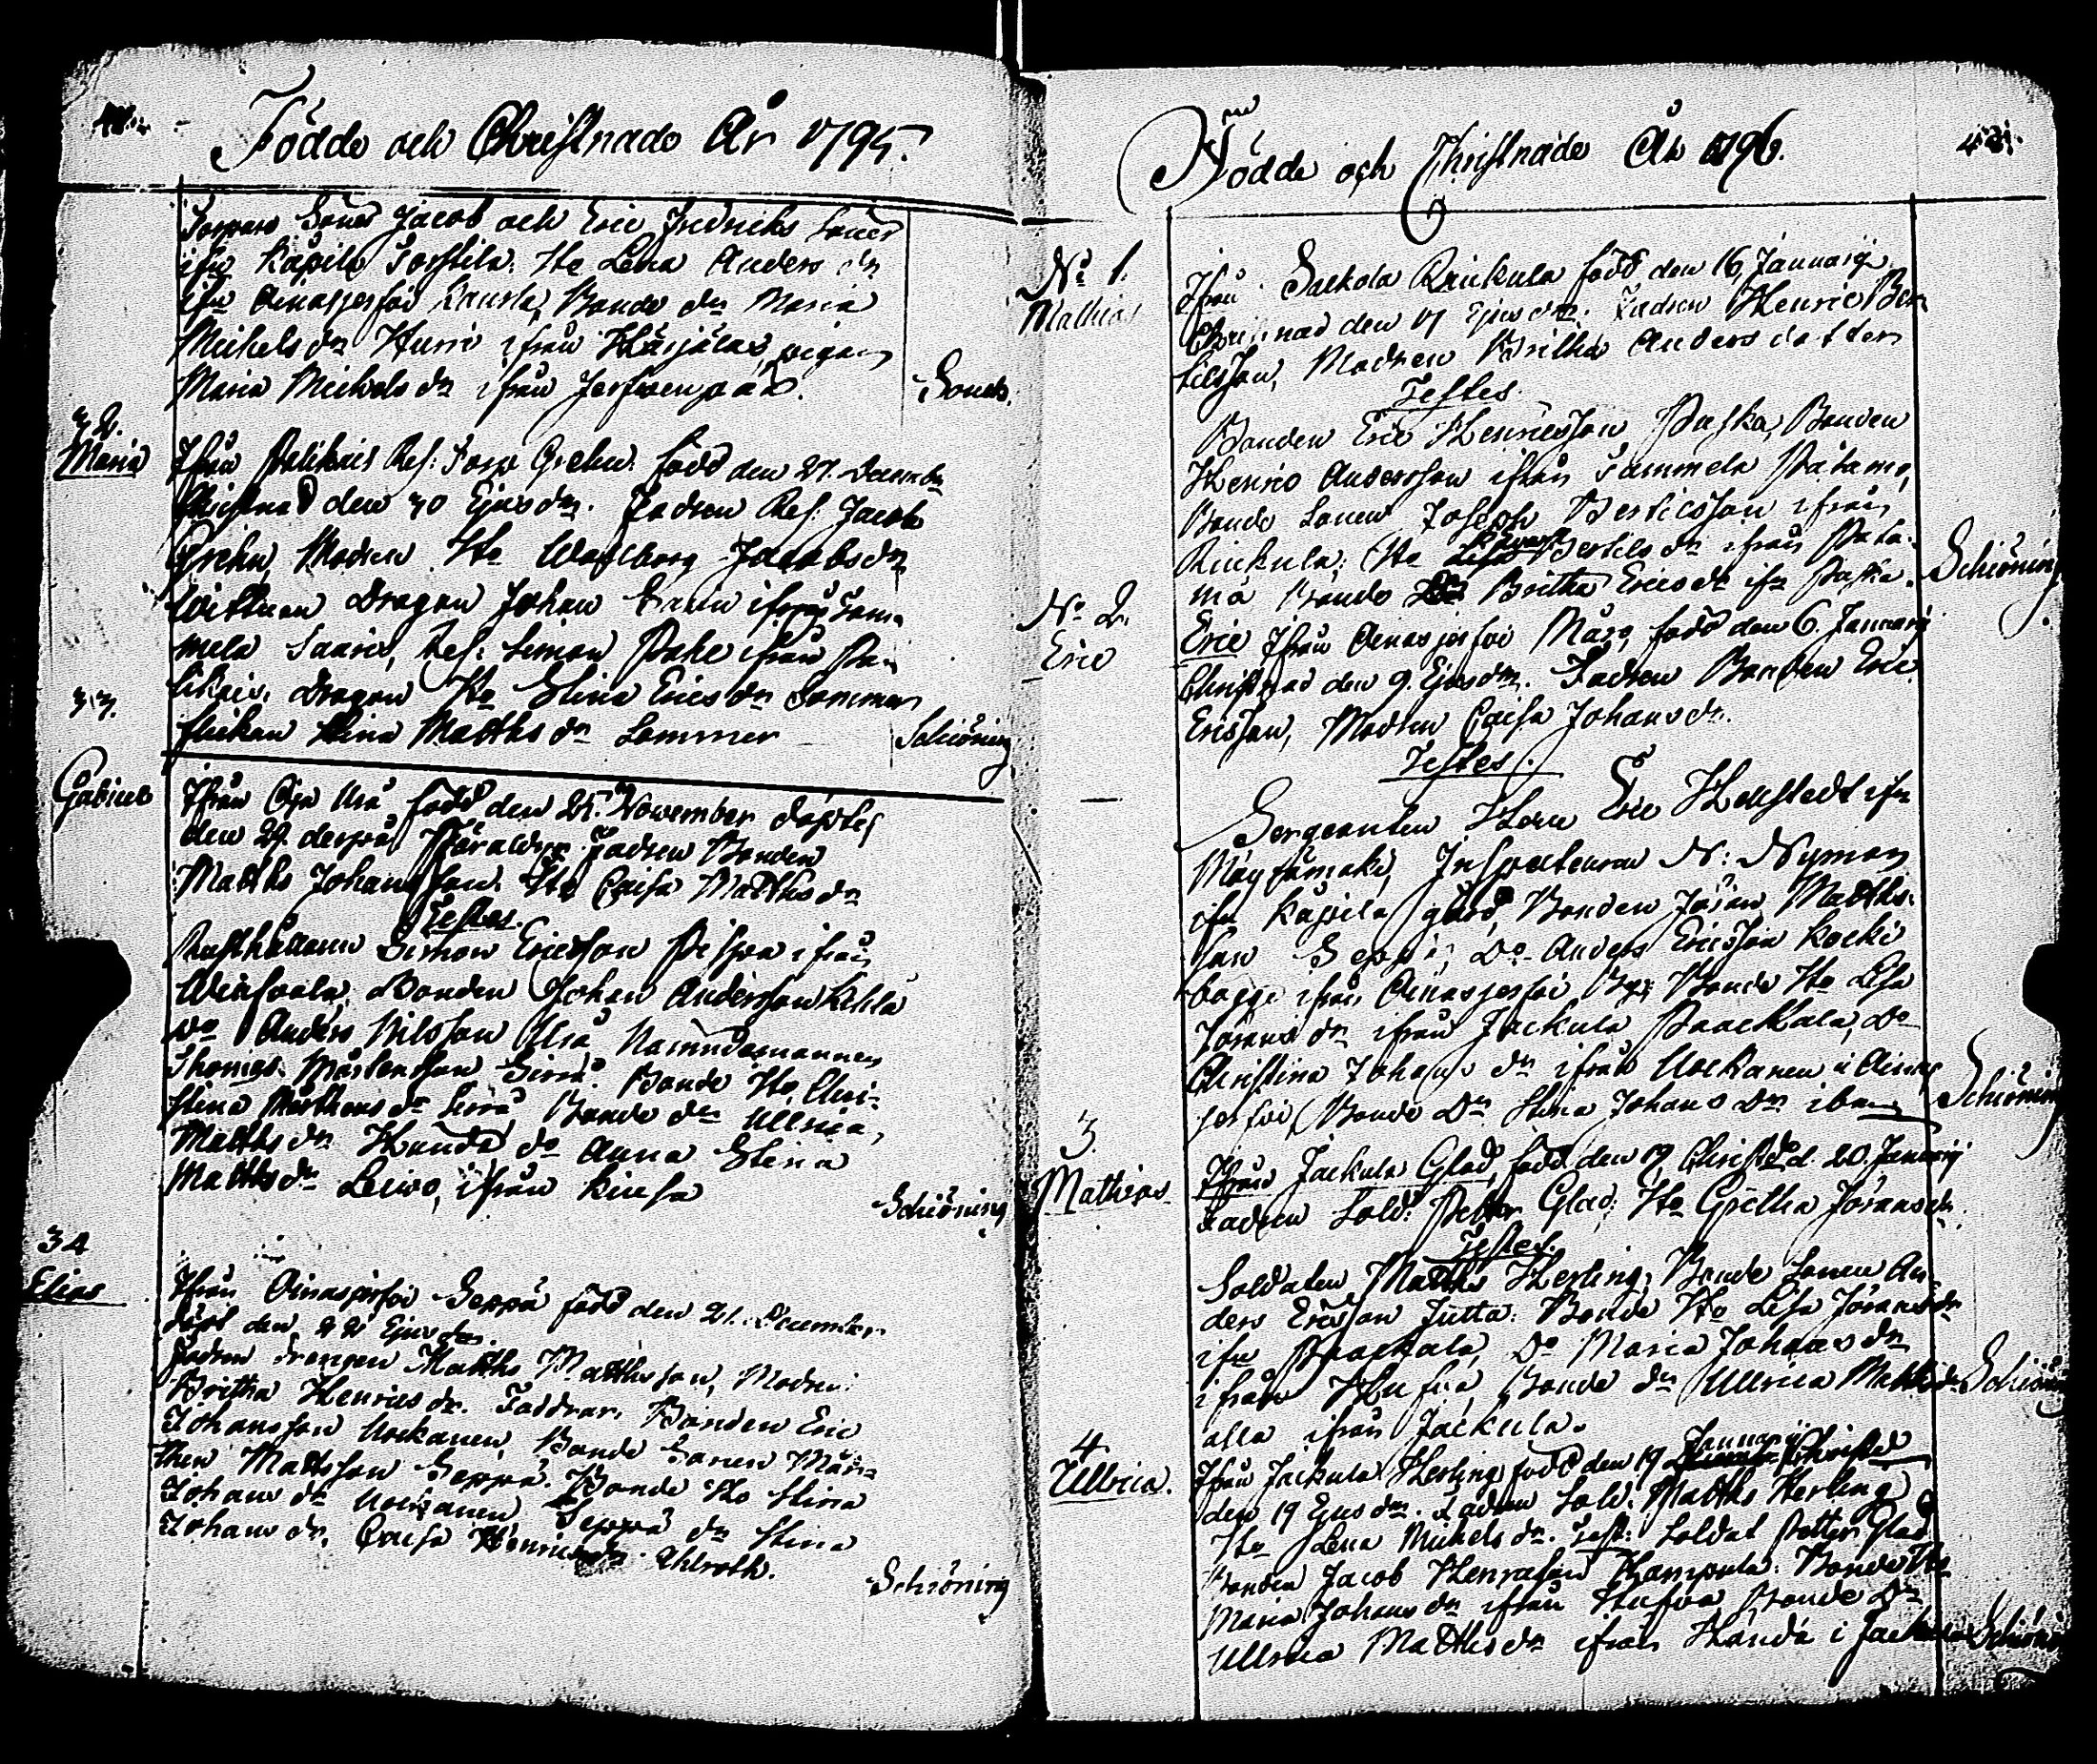 Födde och Christnade År 1795.
Torpare Söner Jacob och Eric Fredrics Söner
ifrn Käpilä Torstila. Ho Lena Anders dr
ifrn Ainasjerfvi Bonde dr Maria
Michels dr Hurri ifrån pigan
Maria Michels dr ifrån Jerfvenpää.
32.
Maria
Ifrån Palikais Res: Torp Grehn född den 27. Decembr
Christnad den 30 Ejusdm. Fadren Res: Jacob
Grehn, Modren Ho Walborg Jacobs dr
Wittnen Dragon Johan ifrån Som-
mela Saaris, Res: Simon Pahl ifrån Pa-
likais. Dragon Ho Stina Erics dr Sommer
flickan Stina Matths dr Sommer
Schiöning
33.
Gabriel
Ifrån Oja Ura född den 25. November döptes
den 29. derpå Föräldrar Fadren Bonden
Matths Johansson. Ho Caisa Matths dr
Testes.
Rusthållaren Simon Ericsson ifrån
Bonden Johan Andersson Kihla
Do Anders Nilsson Ura Nämndemannen
Thomas Mårtensson Sirrä. Bonde Ho Chri-
stina Mårthens dr Sirrä Bonde dr Ullrica
Matths dr Handa do Anna Stina
Matths dr Leivo, ifrån
Schiöning
34
Elias
Ifrån Ainasjerfvi Seppä född den 21. December
döpt den 22 Ejusdm.
Fadren drengen Matths Matthsson, Modren
Britha Henrics dr. Faddrar, Bonden Eric
Johansson Uockanen, Bonde Sonen Mår-
then Mattsson Seppä. Bonde Ho Stina
Johans dr Uockanen, Seppä dr Stina
Johans dr, Caisa Henrics dr Ahlroth.
Schiöning
Födde och Christnade År 1796.
No 1.
Mathias
Ifrån Salkola Rinkula född den 16 Januarii
Christnad den 17 Ejusdm. Fadren Henric Ber-
tilsson, Modren Britha Anders dotter
Testes.
Bonden Eric Henricsson Paska, Bonden
Henric Andersson ifrån Sammela Patamo,
Bonde Sonen Joseph Bertilsson ifrån
Rinkula. Ho Bertils dr ifrån Pata-
mo Bonde Dr Britha Erics dr ifn Paska
Schiöning
No 2.
Eric
Eric Ifrån Ainasjerfvi född den 6. Januarii
Christnad den 9. Ejusdm. Fadren Bonden Eric
Ericsson, Modren Caisa Johans dr.
Testes.
Sergeanten Herr Eric Hellstedt ifn
Inspectoren N: Nyman
ifn Käpilä gård, Bonden Jöran Matths-
son Seppä, Do Anders Ericsson Kocki
ifrån Ainasjerfvi By, Bonde Ho Lisa
Jörans dr ifrån Jackula Do
Christina Johans dr ifrån Uockanen i Ainas
jerfvi, Bonde Dr Stina Johans dr ibm
Schiöning
3.
Mathias
Ifrån Jackula Glad, född den 19, Christd d. 20. Januarii
Fadren Sold: Petter Glad, Ho Gretha Jörans dr.
Testes.
Soldaten Matths Herling, Bonde Sonen An-
ders Ericsson Jutta. Bonde Ho Lisa Jörans dr
ifn Do Maria Johans dr
ifrån Hufva, Bonde dr Ullrica Matths dr
alla ifrån Jackula.
Schiöning
4.
Ullrica.
Ifrån Jackula Herling född den 19 Januarii Christd
den 19 Ejusdm. Fadren Sold. Matths Herling
Ho Lena Michels dr. Test: Soldat Petter Glad
Bonden Jacob Henrasson Hampula. Bonde Ho
Maria Johans dr ifrån Hufva Bonde Dr
Ullrica Matths dr ifrån Handa i Jackula
Schiöning